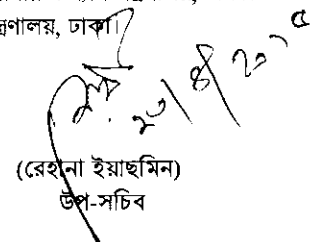 ন্ত্রণালয়, ঢাকা।
২০/৪/২০১৫
(রেহানা ইয়াছমিন)
উপ-সচিব